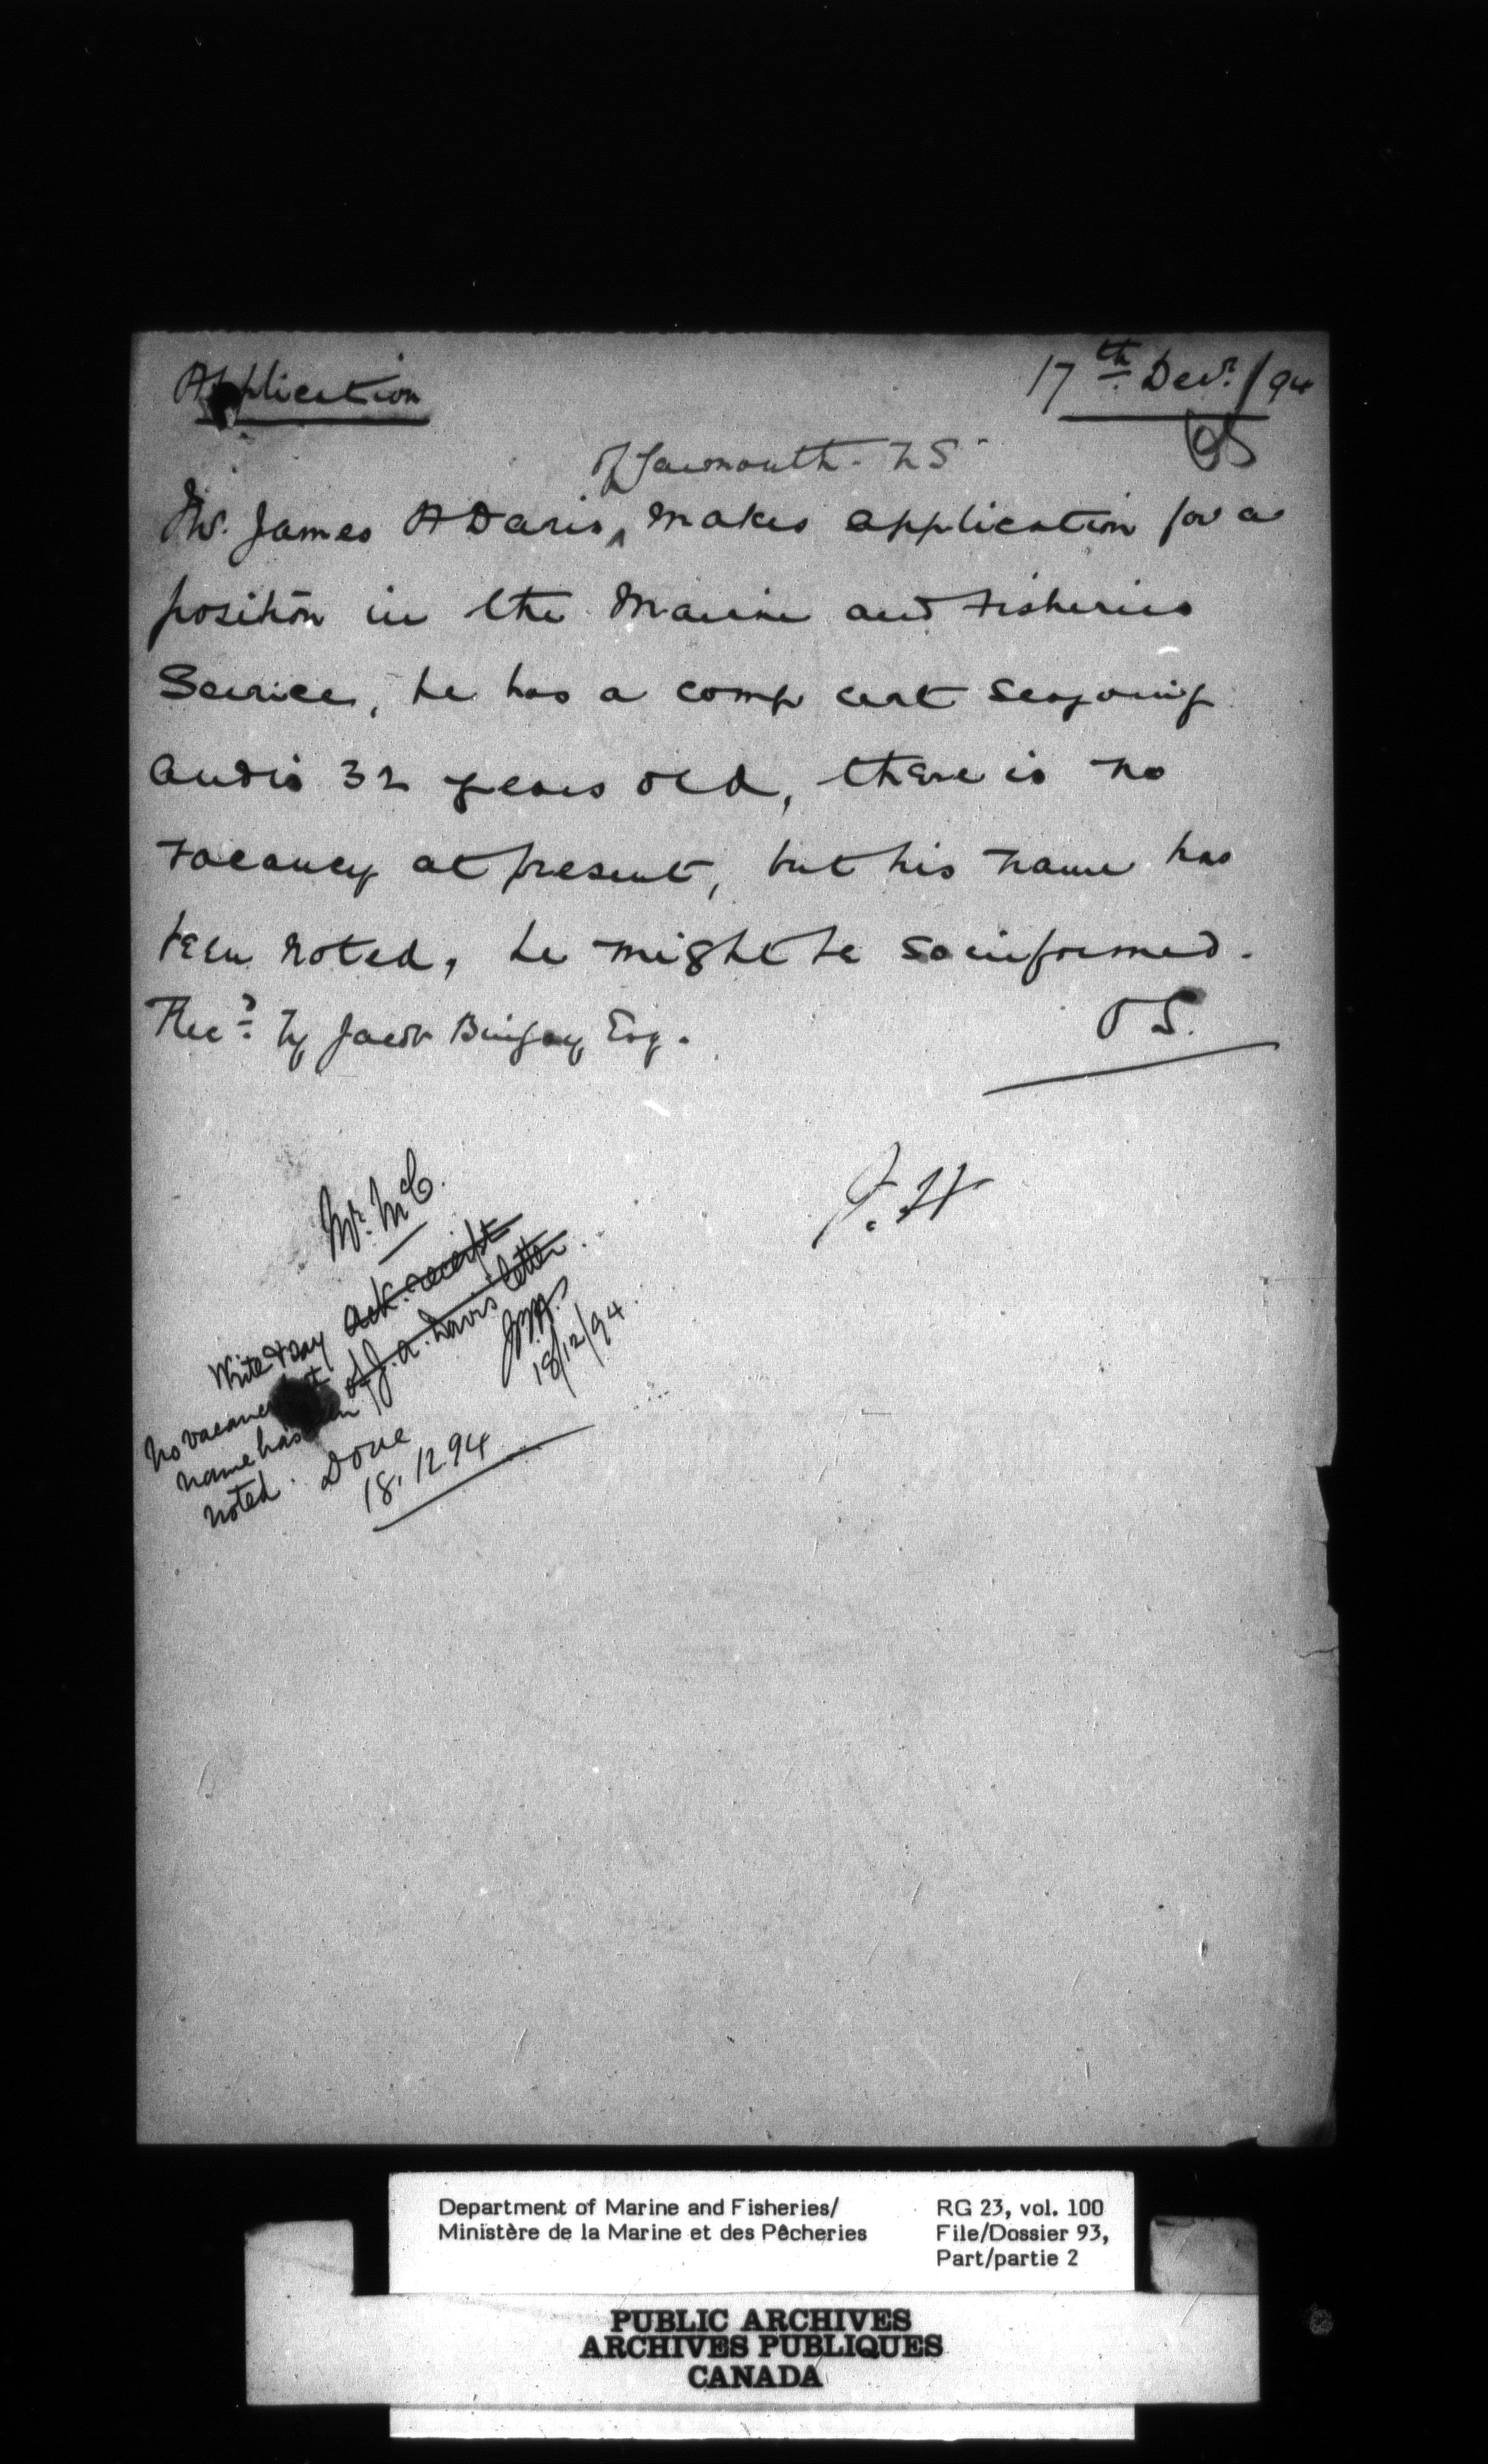 Application
17th Decr. / 94
OS
of Yarmouth. NS
Mr. James A Davis, makes application for a
position in the Marine and Fisheries
Service, he has a comp cert seagoing
and is 32 years old, there is no
vacancy at present, but his name has
been noted, he might be so informed.
Recd. by Jacob Bingay Esq.
OS.
F. H
Mr. McC.
Write & say ack. receipt
no vacancy but of J. A. Davis letter
name has been
noted.
18/12/94.
Done
18.12.94
Department of Marine and Fisheries/
Ministère de la Marine et des Pêcheries
RG 23, vol. 100
File/Dossier 93,
Part/partie 2
PUBLIC ARCHIVES
ARCHIVES PUBLIQUES
CANADA